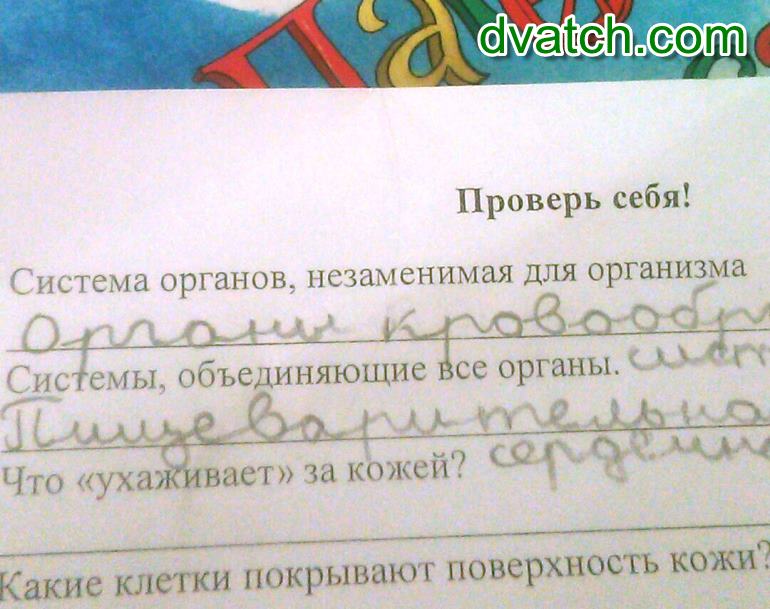 dvatch.com
Проверь себя!
Система органов, незаменимая для организма
Органы кровообр
Системы, объединяющие все органы. сист
Пищеварительная
Что «ухаживает» за кожей?
Какие клетки покрывают поверхность кожи?